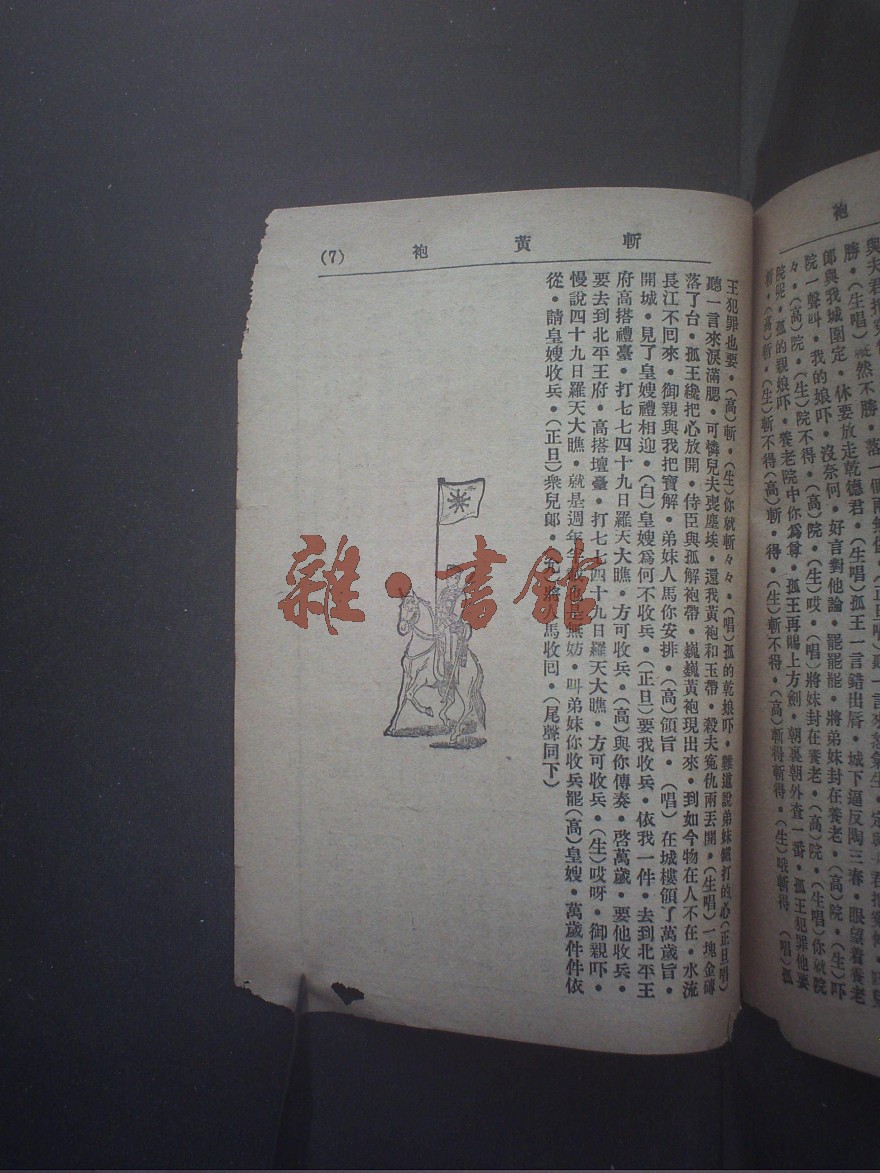 袍
郎與我城圍定・休要放走乾德君・(生唱)孤王一言錯出唇・城下逼反陶三春・眼望着養老
院一聲叫・我的娘吓・沒奈何・好言對他論・罷罷罷・將弟妹封在養老・(高)院・(生)吓
々・(高)院・(生)院不得・(高)院・(生)哎・(唱)將妹封在養老・(高)院・(生唱)你就院
院呢・孤的親娘吓・養老院中你爲尊・孤王再賜上方劍・朝裏朝外查一番・孤王犯罪他要
斬・(高)斬・(生)斬不得(高)斬・得・(生)斬不得・(高)斬得斬得・(生)哦斬得 (唱)孤
斬黃袍
(7)
王犯罪也要・(高)斬・(生)你就斬々々・(唱)孤的乾娘吓・難道說弟妹鐵打的心(正旦唱)
聽一言來淚滿腮・可憐兒夫喪塵埃・還我黃袍和玉帶・殺夫寃仇兩丟開・(生唱)一塊金磚
落了台・孤王纔把心放開・侍臣與孤解袍帶・巍巍黃袍現出來・到如今物在人不在・水流
長江不回來・御親與我把寶解・弟妹人馬你安排・(高)領旨・(唱)在城樓領了萬歲旨・
開城・見了皇嫂禮相迎・(白)皇嫂爲何不收兵・(正旦)要我收兵・依我一件・去到北平王
府高搭禮臺・打七七四十九日羅天大瞧・方可收兵・(高)與你傳奏・啓萬歲・要他收兵・
要去到北平王府・高搭壇臺・打七七四十九日羅天大瞧・方可收兵・(生)哎呀・御親吓・
慢說四十九日羅天大瞧・就是週年半載也是無妨・叫弟妹你收兵罷(高)皇嫂・萬歲件件依
從・請皇嫂收兵・(正旦)衆兒郎・人馬收回・(尾聲同下)
雜・書館